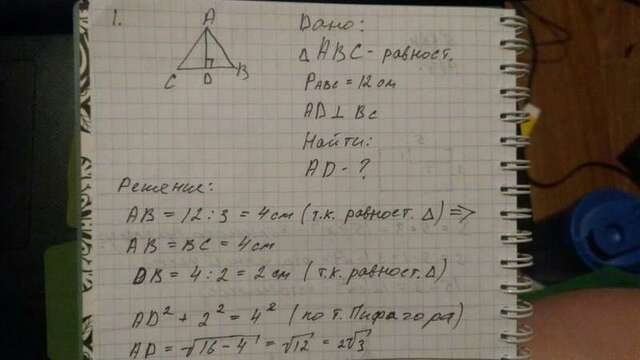 1.
A
C D B
Дано:
△ABC - равност.
P ABC = 12 см
AD ⊥ BC
Найти:
AD - ?
Решение:
AB = 12 : 3 = 4 см (т.к. равност. △) =>
AB = BC = 4 см
DB = 4 : 2 = 2 см (т.к. равност. △)
AD² + 2² = 4² (по т. Пифагора)
AD = √16 - 4 = √12 = 2√3